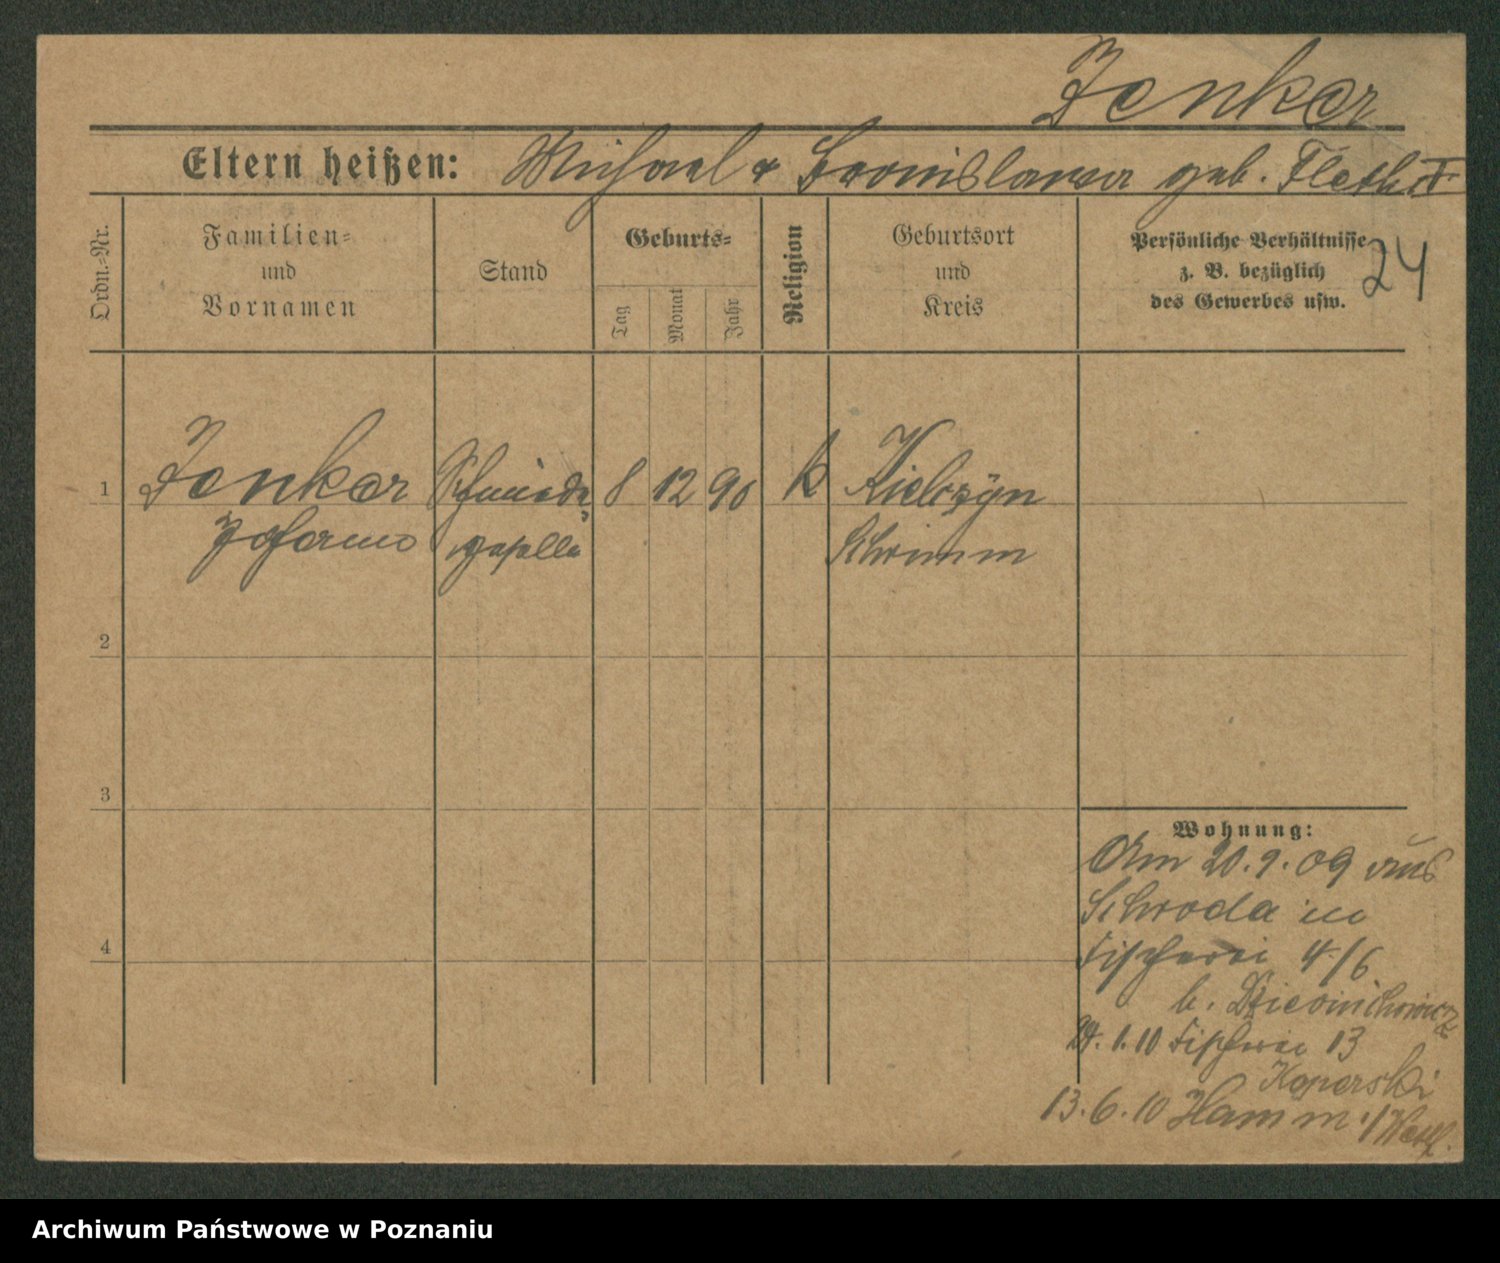 Zenker
Eltern heißen: Michael & Bronislawa geb.
Ordn.-Nr.
Familien-
und
Vornamen
Stand
Geburts-
Tag
Monat
Jahr
Religion
Geburtsort
und
Kreis
Persönliche Verhältnisse
z. B. bezüglich
des Gewerbes usw.
24
1 Zenker Schmiede 8 12 90 k Kielczyn
Johann geselle Schrimm
2
3
4
Wohnung:
Am 20.9.09 aus
Schroda in
Fischerei 4/6
b.
24.1.10 Fischerei 13
Koperski
13.6.10 Hamm i/Westf.
Archiwum Państwowe w Poznaniu